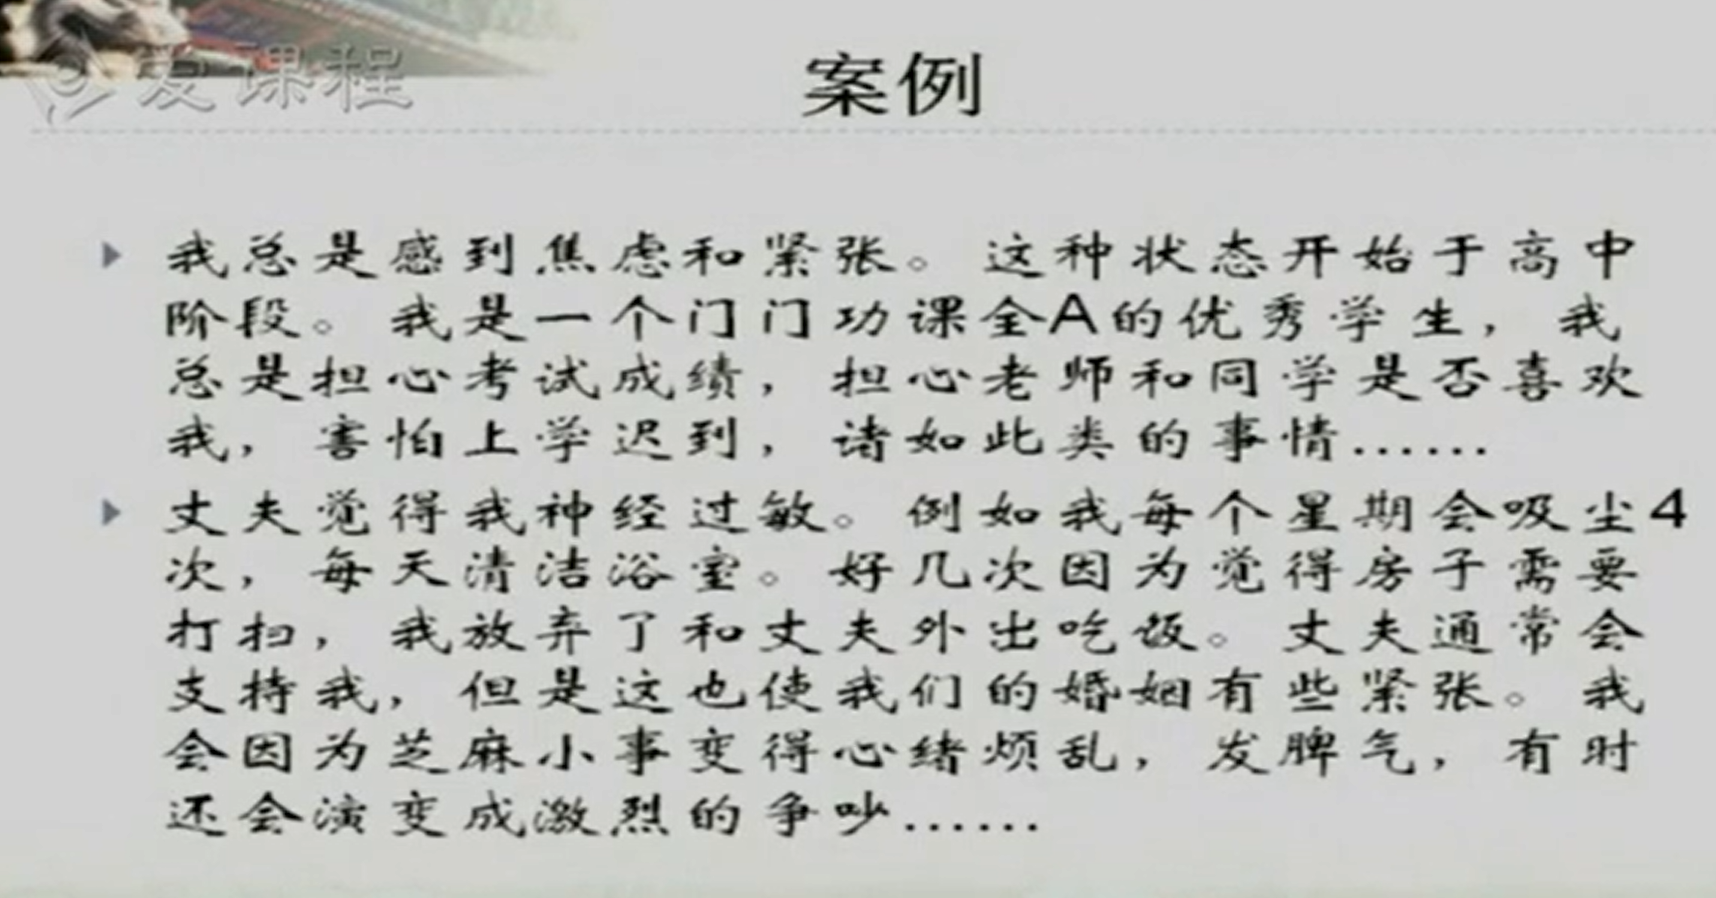 爱课程
案例
我总是感到焦虑和紧张。这种状态开始于高中
阶段。我是一个门门功课全A的优秀学生，我
总是担心考试成绩，担心老师和同学是否喜欢
我，害怕上学迟到，诸如此类的事情……
丈夫觉得我神经过敏。例如我每个星期会吸尘4
次，每天清洁浴室。好几次因为觉得房子需要
打扫，我放弃了和丈夫外出吃饭。丈夫通常会
支持我，但是这也使我们的婚姻有些紧张。我
会因为芝麻小事变得心绪烦乱，发脾气，有时
还会演变成激烈的争吵……